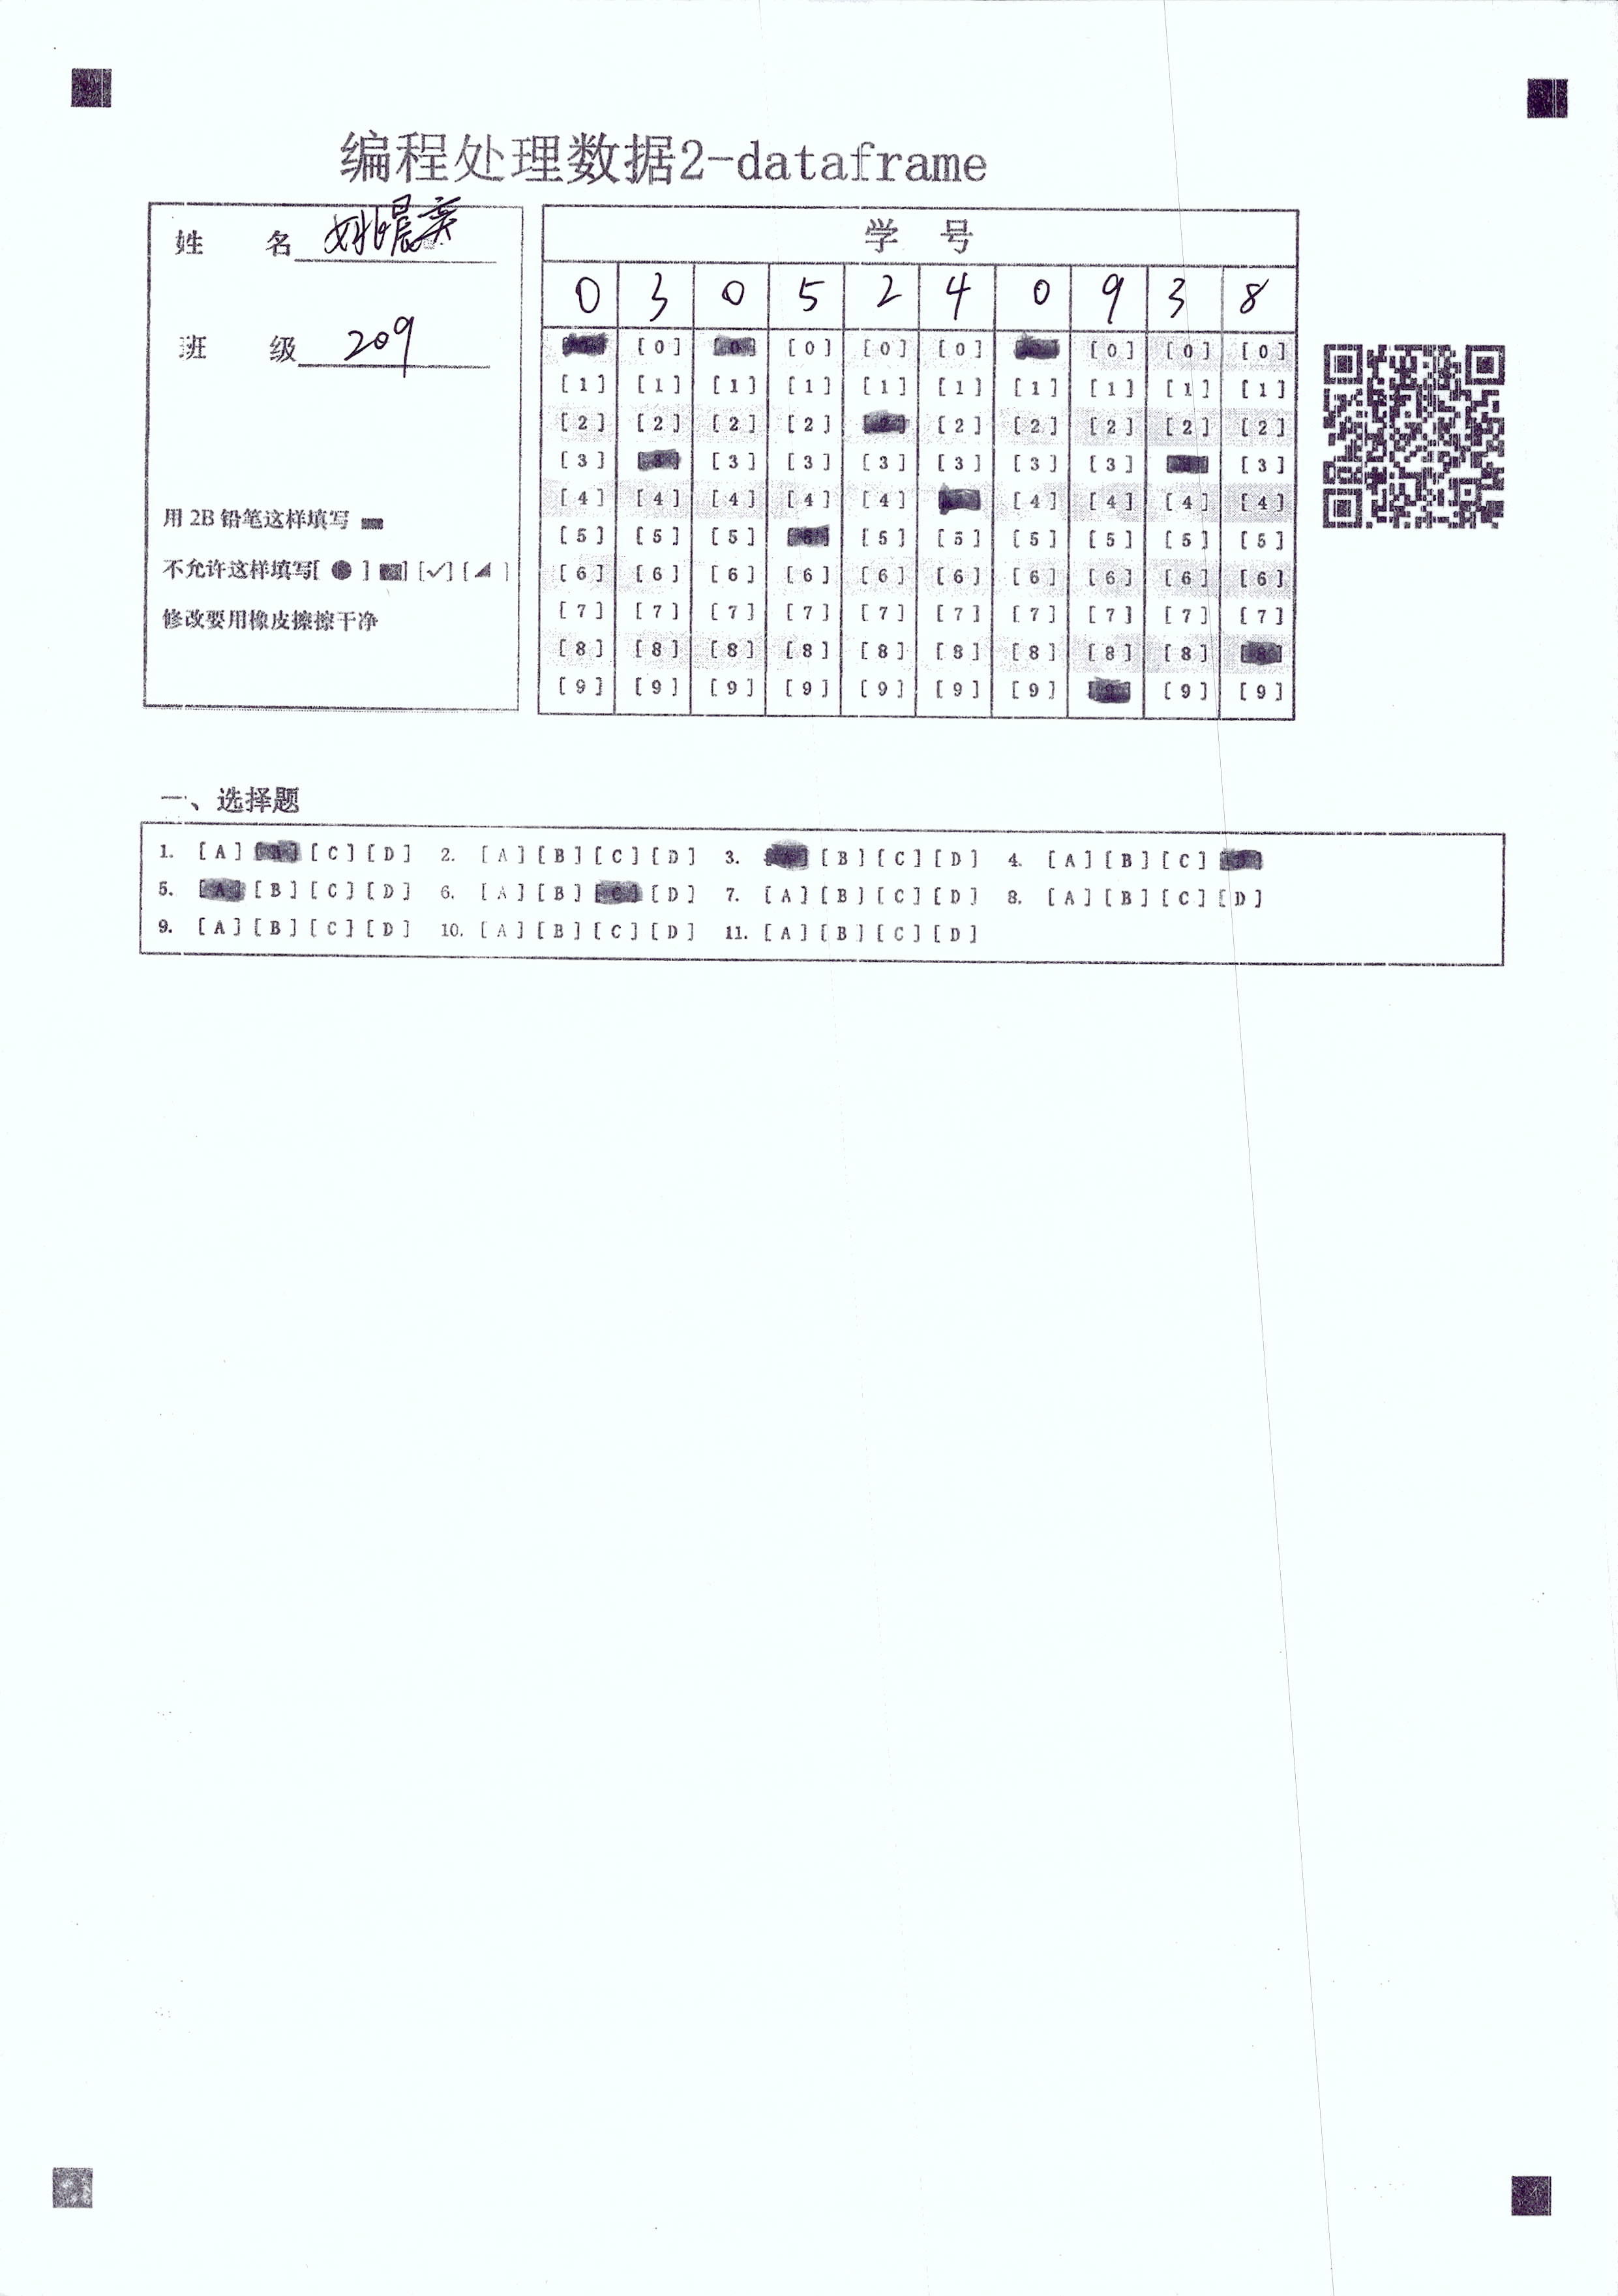 编程处理数据2-dataframe
姓 名 姚晨奕
班 级 209
用 2B 铅笔这样填写
不允许这样填写[ ● ] [■] [✓] [◢ ]
修改要用橡皮擦擦干净
学 号
0 3 0 5 2 4 0 9 3 8
[0] [0] [0] [0] [0] [0] [0]
[1] [1] [1] [1] [1] [1] [1] [1] [1] [1]
[2] [2] [2] [2] [2] [2] [2] [2] [2] [2]
[3] [3] [3] [3] [3] [3] [3] [3] [3]
[4] [4] [4] [4] [4] [4] [4] [4] [4]
[5] [5] [5] [5] [5] [5] [5] [5] [5] [5]
[6] [6] [6] [6] [6] [6] [6] [6] [6] [6]
[7] [7] [7] [7] [7] [7] [7] [7] [7] [7]
[8] [8] [8] [8] [8] [8] [8] [8] [8] [8]
[9] [9] [9] [9] [9] [9] [9] [9] [9] [9]
一、选择题
1. [A] [B] [C] [D] 2. [A] [B] [C] [D] 3. [A] [B] [C] [D] 4. [A] [B] [C] [D]
5. [A] [B] [C] [D] 6. [A] [B] [C] [D] 7. [A] [B] [C] [D] 8. [A] [B] [C] [D]
9. [A] [B] [C] [D] 10. [A] [B] [C] [D] 11. [A] [B] [C] [D]